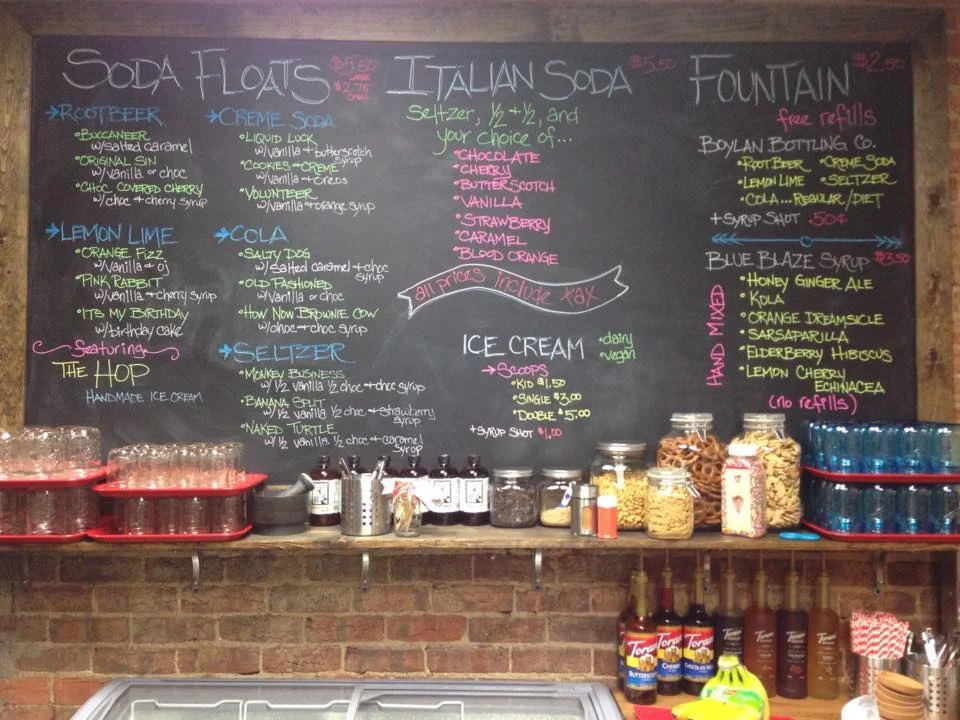 SODA FLOATS $5.50 LARGE
$2.75 SMALL
→ROOTBEER
•BUCCANEER
w/salted caramel
•ORIGINAL SIN
w/vanilla or choc
•CHOC COVERED CHERRY
w/choc + cherry syrup
→LEMON LIME
•ORANGE FIZZ
w/vanilla + oj
•PINK RABBIT
w/vanilla + cherry syrup
•ITS MY BIRTHDAY
w/birthday cake
featuring
THE HOP
HANDMADE ICE CREAM
→CREME SODA
•LIQUID LUCK
w/vanilla + butterscotch syrup
•COOKIES + CREME
w/vanilla + oreos
•VOLUNTEER
w/vanilla + orange syrup
→COLA
•SALTY DOG
w/salted caramel + choc syrup
•OLD FASHIONED
w/vanilla or choc
•HOW NOW BROWNIE COW
w/choc + choc syrup
→SELTZER
•MONKEY BUSINESS
w/ 1/2 vanilla 1/2 choc + choc syrup
•BANANA SPLIT
w/ 1/2 vanilla 1/2 choc + strawberry syrup
•NAKED TURTLE
w/ 1/2 vanilla 1/2 choc + caramel syrup
ITALIAN SODA $5.50
Seltzer, 1/2 + 1/2, and
your choice of...
•CHOCOLATE
•CHERRY
•BUTTERSCOTCH
•VANILLA
•STRAWBERRY
•CARAMEL
•BLOOD ORANGE
all prices include tax
ICE CREAM •dairy
•vegan
→SCOOPS
•KID $1.50
•SINGLE $3.00
•DOUBLE $5.00
+SYRUP SHOT $1.00
FOUNTAIN $2.50
free refills
BOYLAN BOTTLING CO.
•ROOTBEER •CREME SODA
•LEMON LIME •SELTZER
•COLA...REGULAR/DIET
+SYRUP SHOT .50¢
BLUE BLAZE SYRUP $3.50
HAND MIXED
•HONEY GINGER ALE
•KOLA
•ORANGE DREAMSICLE
•SARSAPARILLA
•ELDERBERRY HIBISCUS
•LEMON CHERRY
ECHINACEA
(no refills)
Torani
Torani
Torani
Torani
Torani
Torani
Torani